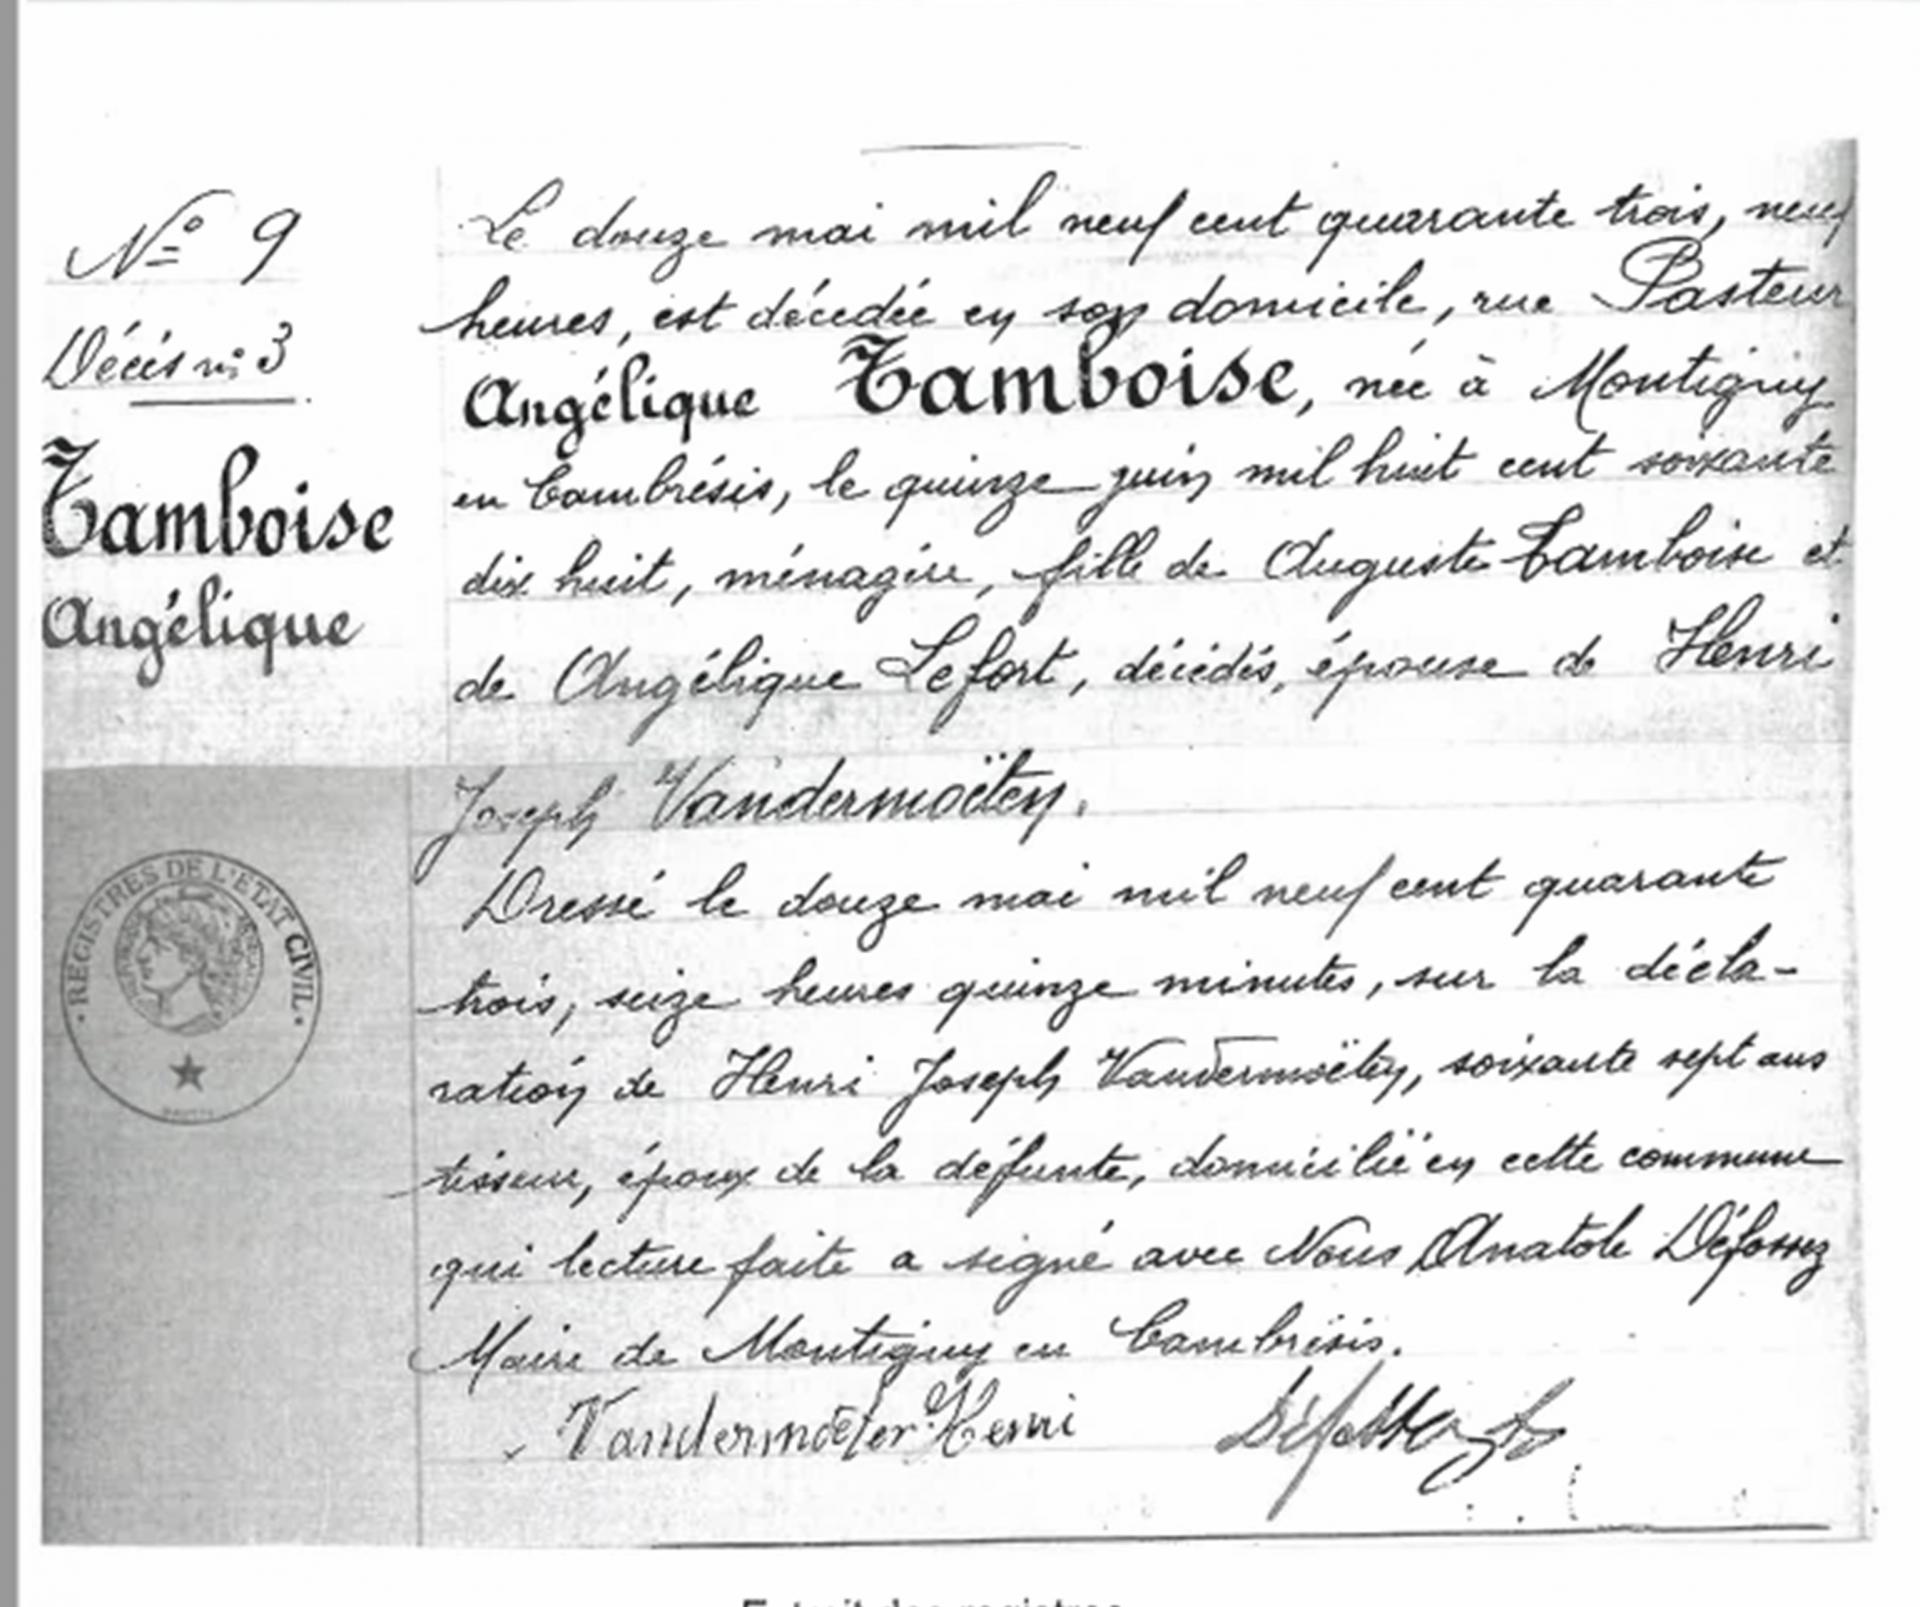 Nº 9
Décès nº 3
Tamboise
Angélique
Le douze mai mil neuf cent quarante trois, neuf
heures, est décédée en son domicile, rue Pasteur
Angélique Tamboise, née à Montigny
en Cambrésis, le quinze juin mil huit cent soixante
dix huit, ménagère, fille de Auguste Tamboise et
de Angélique Lefort, décédés, épouse de Henri
Joseph Vandermoëten.
Dressé le douze mai mil neuf cent quarante
trois, seize heures quinze minutes, sur la décla-
ration de Henri Joseph Vandermoëten, soixante sept ans
tisseur, époux de la défunte, domicilié en cette commune
qui lecture faite a signé avec Nous Anatole Défossez
Maire de Montigny en Cambrésis.
Vandermoëten Henri
Défossez
REGISTRES DE L'ETAT CIVIL
Extrait des registres